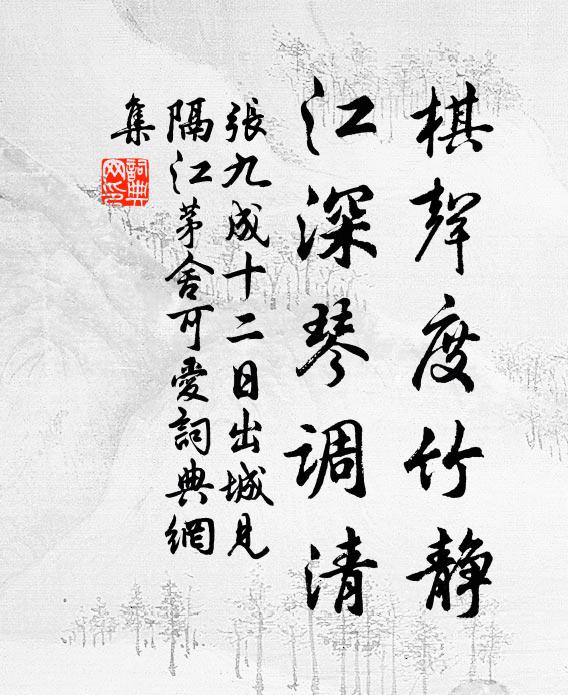 棋聲度竹静
江深琴调清
張九成十二日出城見
隔江茅舍可愛詞典網
集
詞典網印